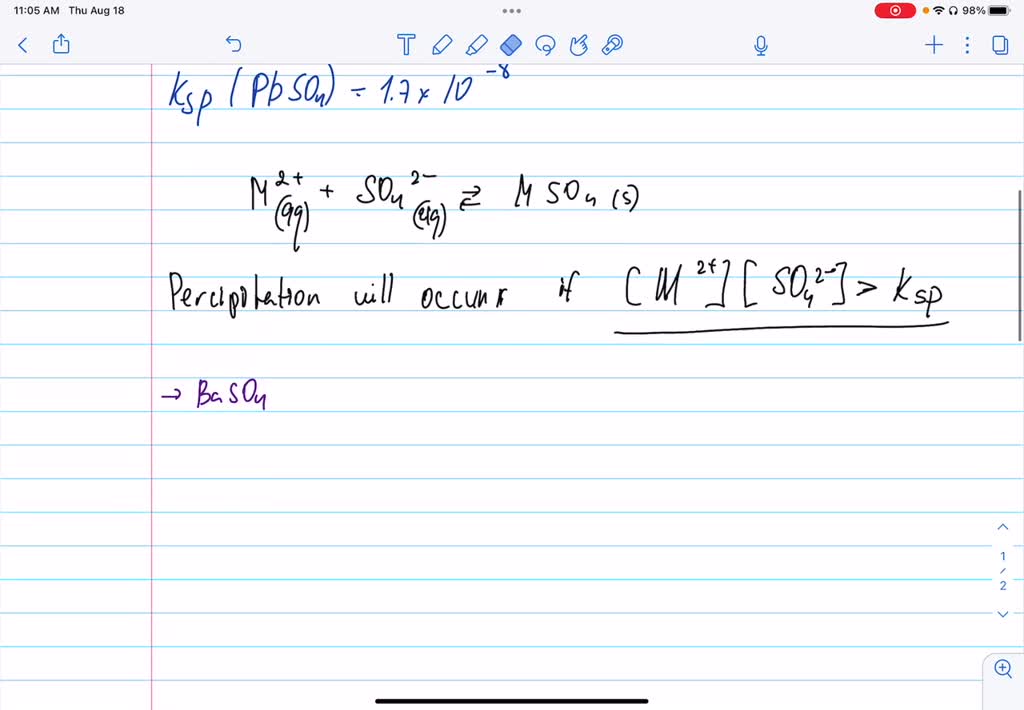 11:05 AM Thu Aug 18
98%
Ksp (PbSO4) = 1.7 x 10^-8
M^2+ (aq) + SO4^2- (aq) ⇄ MSO4 (s)
Percipitation will occurs if [M^2+][SO4^2-] > Ksp
→ BaSO4
1
/
2